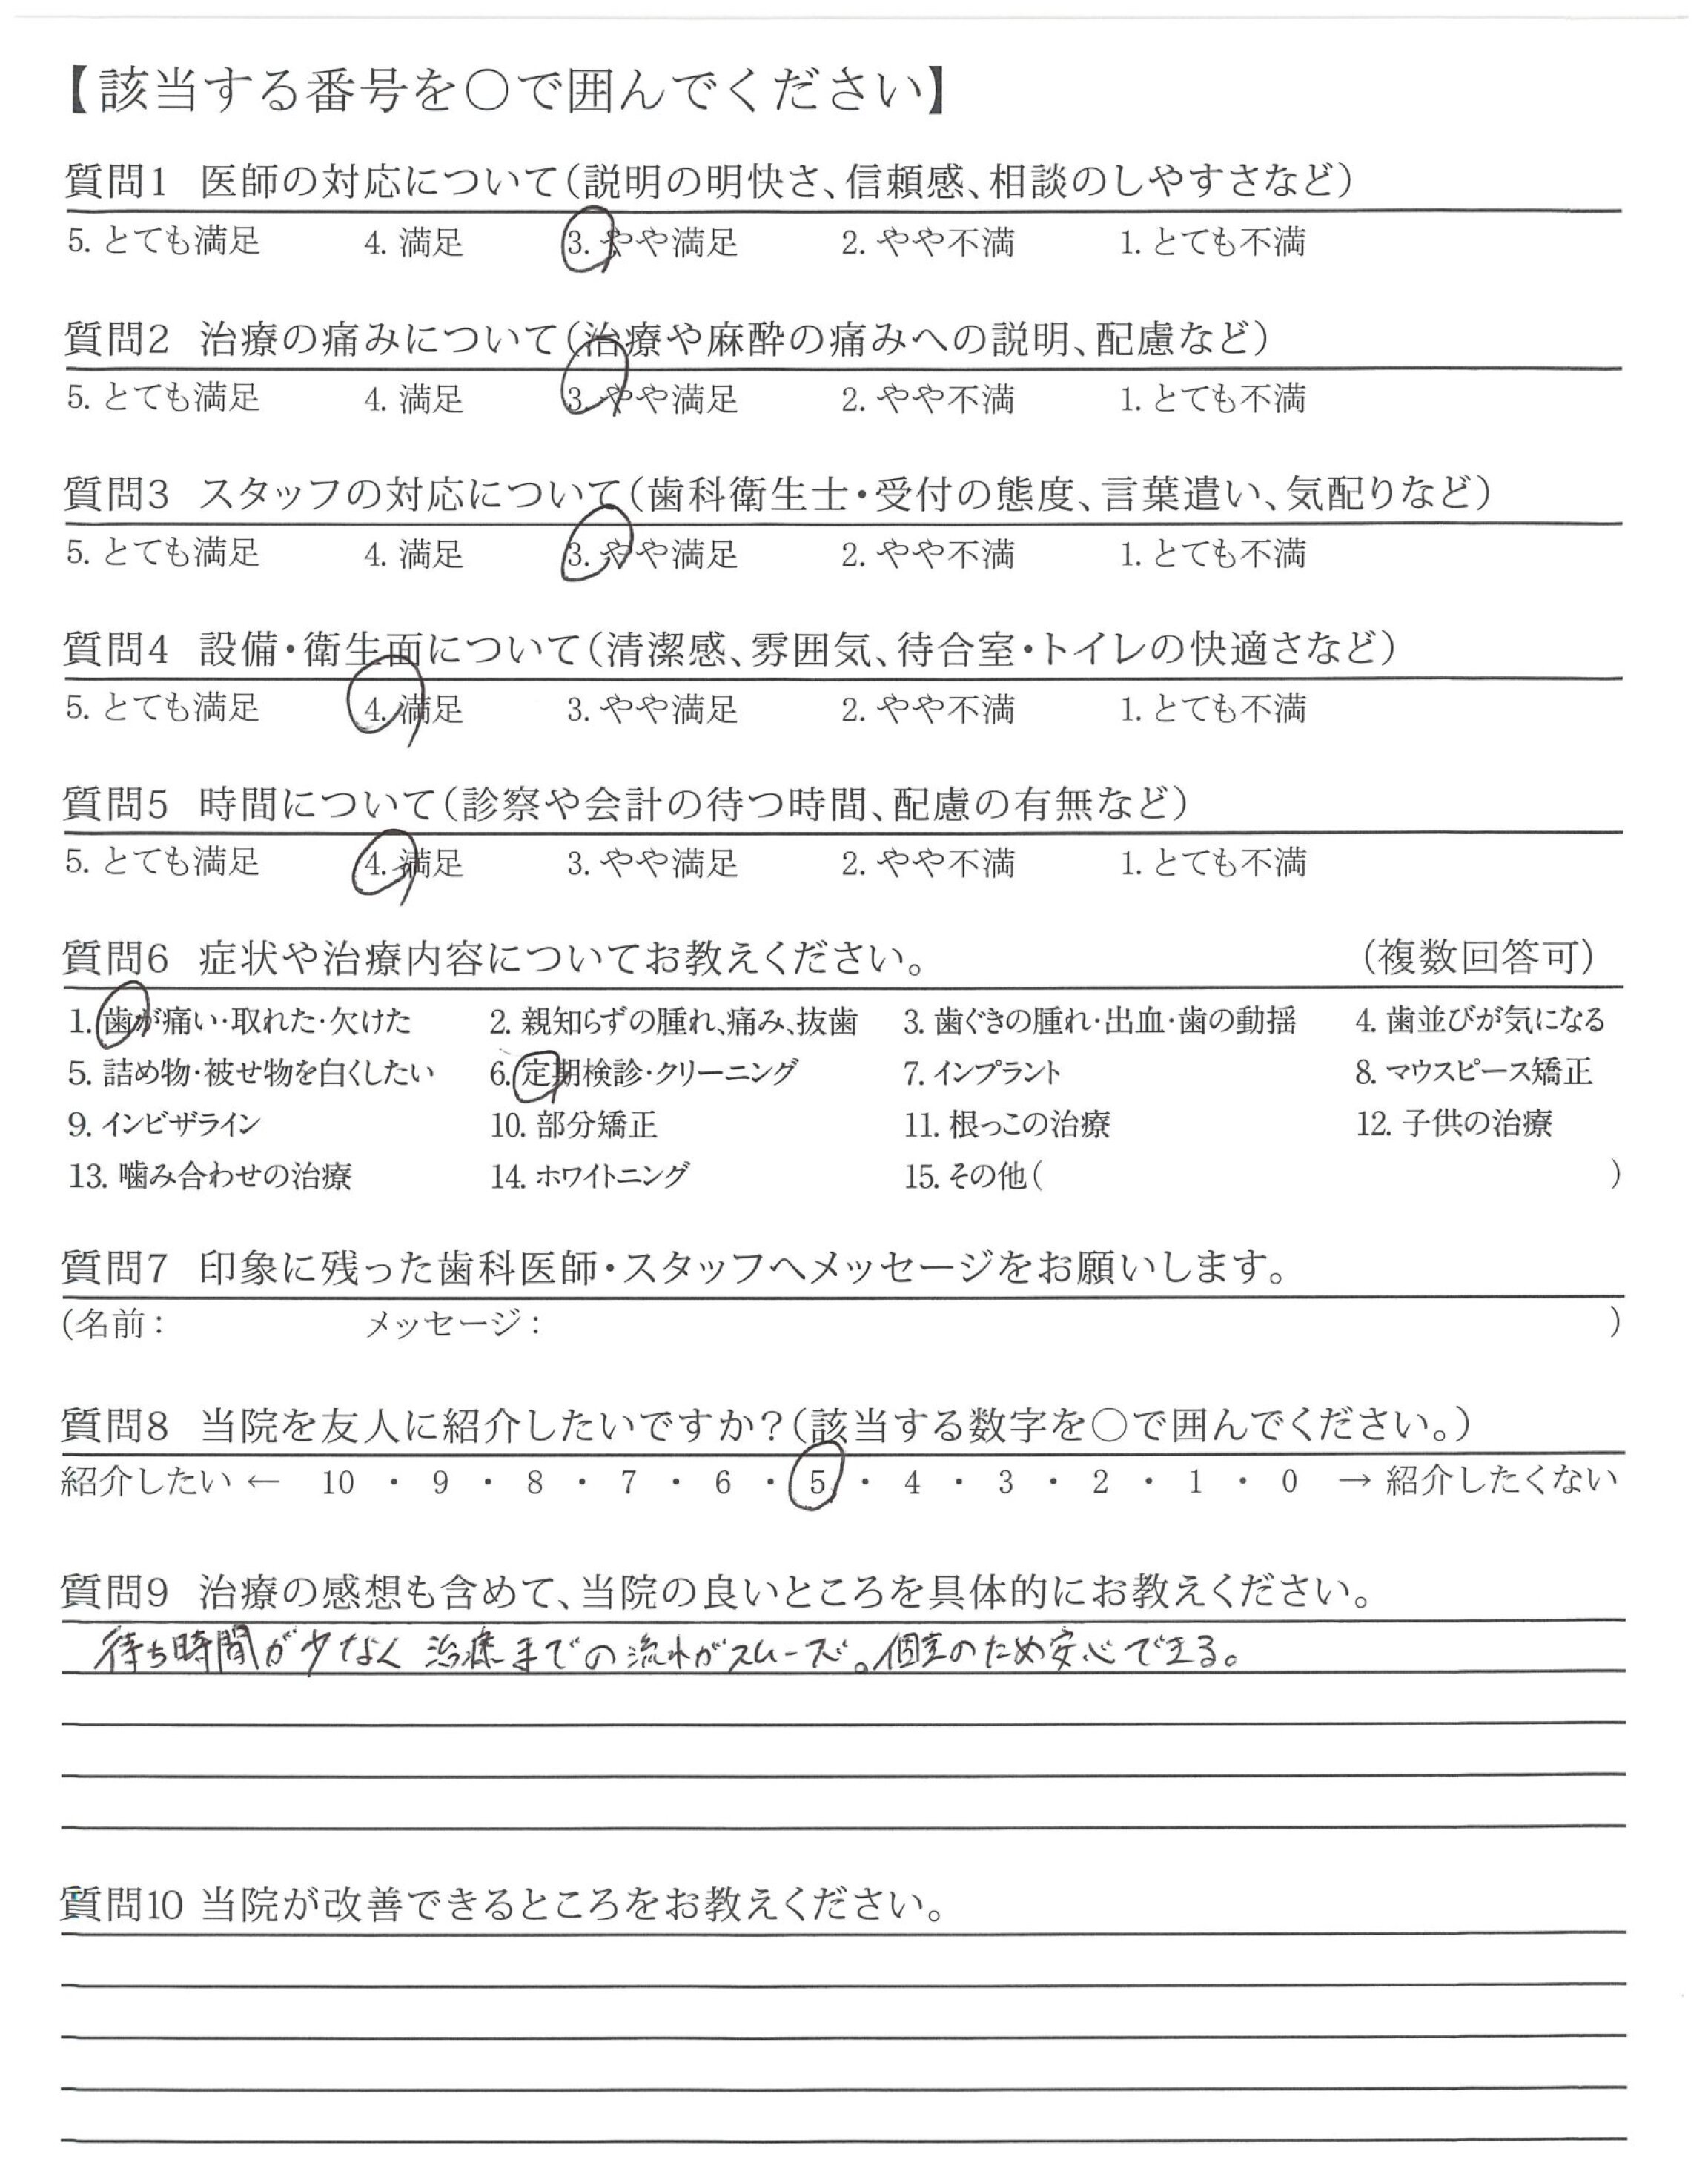 【該当する番号を○で囲んでください】
質問1 医師の対応について(説明の明快さ、信頼感、相談のしやすさなど)
5. とても満足 4. 満足 3. やや満足 2. やや不満 1. とても不満
質問2 治療の痛みについて(治療や麻酔の痛みへの説明、配慮など)
5. とても満足 4. 満足 3. やや満足 2. やや不満 1. とても不満
質問3 スタッフの対応について(歯科衛生士・受付の態度、言葉遣い、気配りなど)
5. とても満足 4. 満足 3. やや満足 2. やや不満 1. とても不満
質問4 設備・衛生面について(清潔感、雰囲気、待合室・トイレの快適さなど)
5. とても満足 4. 満足 3. やや満足 2. やや不満 1. とても不満
質問5 時間について(診察や会計の待つ時間、配慮の有無など)
5. とても満足 4. 満足 3. やや満足 2. やや不満 1. とても不満
質問6 症状や治療内容についてお教えください。 (複数回答可)
1. 歯が痛い・取れた・欠けた 2. 親知らずの腫れ、痛み、抜歯 3. 歯ぐきの腫れ・出血・歯の動揺 4. 歯並びが気になる
5. 詰め物・被せ物を白くしたい 6. 定期検診・クリーニング 7. インプラント 8. マウスピース矯正
9. インビザライン 10. 部分矯正 11. 根っこの治療 12. 子供の治療
13. 噛み合わせの治療 14. ホワイトニング 15. その他( )
質問7 印象に残った歯科医師・スタッフへメッセージをお願いします。
(名前: メッセージ: )
質問8 当院を友人に紹介したいですか?(該当する数字を○で囲んでください。)
紹介したい ← 10 ・ 9 ・ 8 ・ 7 ・ 6 ・ 5 ・ 4 ・ 3 ・ 2 ・ 1 ・ 0 → 紹介したくない
質問9 治療の感想も含めて、当院の良いところを具体的にお教えください。
待ち時間が少なく 治療までの流れがスムーズ。個室のため安心できる。
質問10 当院が改善できるところをお教えください。